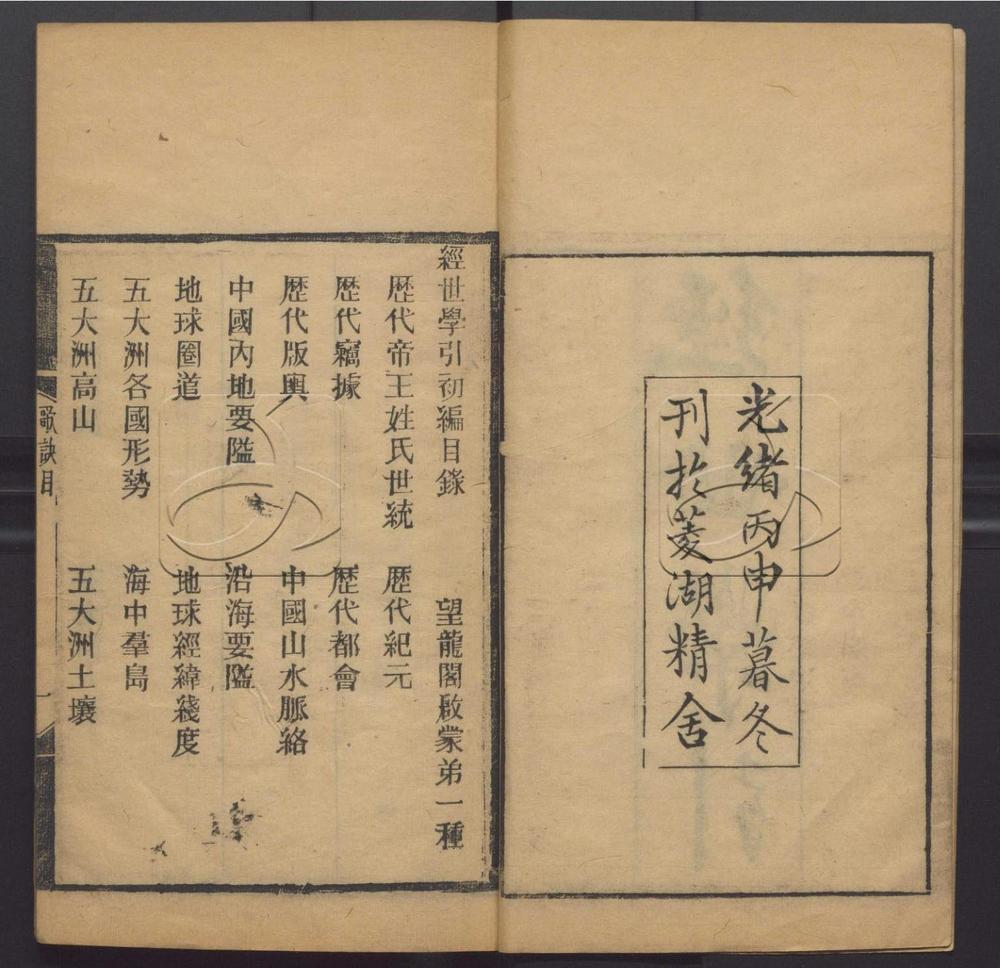 光緒丙申暮冬
刊於菱湖精舍
經世學引初編目錄　望龍閣啟蒙弟一種
歷代帝王姓氏世統　歷代紀元
歷代竊據　歷代都會
歷代版輿　中國山水脈絡
中國內地要隘　沿海要隘
地球圈道　地球經緯綫度
五大洲各國形勢　海中羣島
五大洲高山　五大洲土壤
歌訣目　一